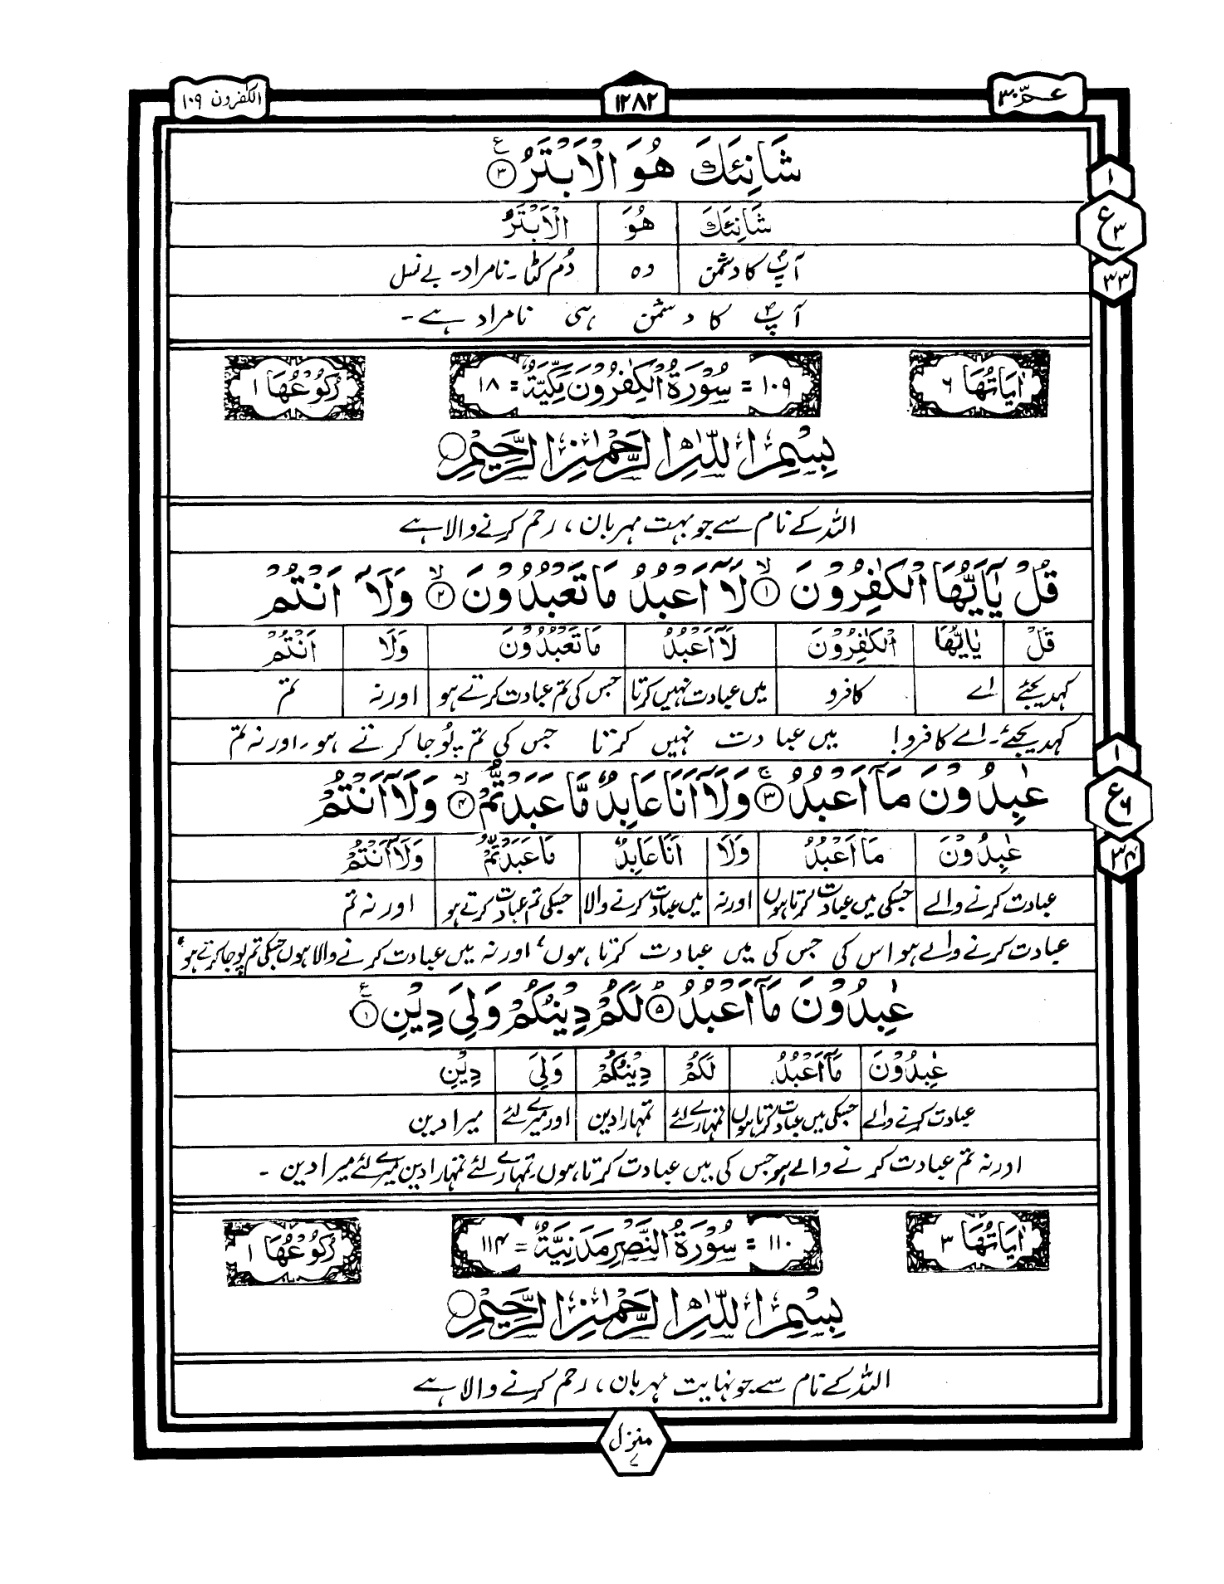 عـمّ ۳۰
۱۲۸۲
الکفرون ۱۰۹
شَانِئَكَ هُوَ الْاَبْتَرُ ۳ ع
۱
ع ۳
۳۳
شَانِئَكَ هُوَ الْاَبْتَرُ
آپؐ کا دشمن وہ دُم کٹا۔ نامراد۔ بے نسل
آپؐ کا دشمن ہی نامراد ہے۔
اٰيَاتُهَا ۶ ۱۰۹ = سُوْرَةُ الْكٰفِرُوْنَ مَكِّيَّةٌ = ۱۸ رُكُوْعُهَا ۱
بِسْمِ اللّٰهِ الرَّحْمٰنِ الرَّحِيْمِ
اللہ کے نام سے جو بہت مہربان ، رحم کرنے والا ہے
قُلْ يٰۤاَيُّهَا الْكٰفِرُوْنَ ۱ لَاۤ اَعْبُدُ مَا تَعْبُدُوْنَ ۲ وَلَاۤ اَنْتُمْ
قُلْ يٰاَيُّهَا الْكٰفِرُوْنَ لَاۤ اَعْبُدُ مَا تَعْبُدُوْنَ وَلَا اَنْتُمْ
کہدیجئے اے کافرو میں عبادت نہیں کرتا جس کی تم عبادت کرتے ہو اور نہ تم
کہدیجئے۔ اے کافرو! میں عبادت نہیں کرتا جس کی تم پوجا کرتے ہو۔ اور نہ تم
عٰبِدُوْنَ مَاۤ اَعْبُدُ ۳ وَلَاۤ اَنَا عَابِدٌ مَّا عَبَدْتُّمْ ۴ وَلَاۤ اَنْتُمْ
۱
ع ۶
۳۴
عٰبِدُوْنَ مَا اَعْبُدُ وَلَا اَنَا عَابِدٌ مَا عَبَدْتُّمْ وَلَاۤ اَنْتُمْ
عبادت کرنے والے جسکی میں عبادت کرتا ہوں اور نہ میں عبادت کرنے والا جسکی تم عبادت کرتے ہو اور نہ تم
عبادت کرنے والے ہو اس کی جس کی میں عبادت کرتا ہوں، اور نہ میں عبادت کرنے والا ہوں جسکی تم پوجا کرتے ہو،
عٰبِدُوْنَ مَاۤ اَعْبُدُ ۵ لَكُمْ دِيْنُكُمْ وَلِيَ دِيْنِ ع
عٰبِدُوْنَ مَاۤ اَعْبُدُ لَكُمْ دِيْنُكُمْ وَلِيَ دِيْنِ
عبادت کرنے والے جسکی میں عبادت کرتا ہوں تمہارے لئے تمہارا دین اور میرے لئے میرا دین
اور نہ تم عبادت کرنے والے ہو جس کی میں عبادت کرتا ہوں، تمہارے لئے تمہارا دین میرے لئے میرا دین۔
اٰيَاتُهَا ۳ ۱۱۰ = سُوْرَةُ النَّصْرِ مَدَنِيَّةٌ = ۱۱۴ رُكُوْعُهَا ۱
بِسْمِ اللّٰهِ الرَّحْمٰنِ الرَّحِيْمِ
اللہ کے نام سے جو نہایت مہربان ، رحم کرنے والا ہے
منزل ۷